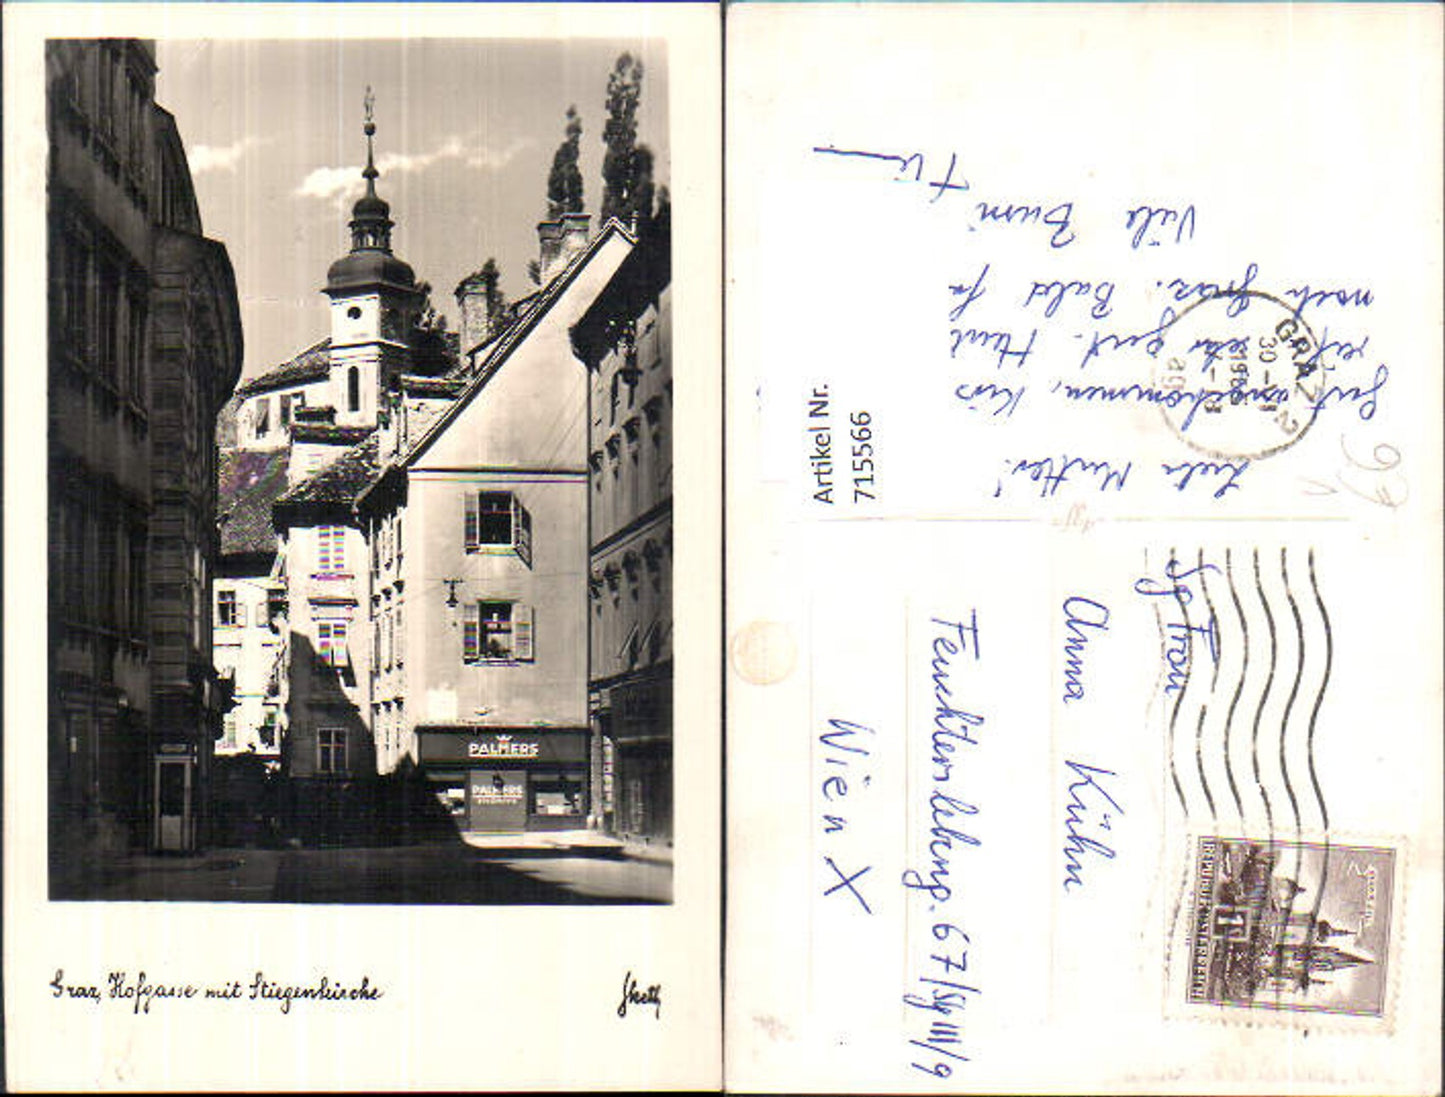 PALMERS
PALMERS
Graz, Hofgasse mit Stiegenkirche
Artikel Nr.
715566
Liebe Mutter!
Gut angekommen. Kurs
sehr gut. Heut
noch Graz. Bald
Viele Bussi
GRAZ 2
30.
Sg Frau
Anna Kühn
Feuchterslebeng. 67/Stg III/9
Wien X
REPUBLIK ÖSTERREICH